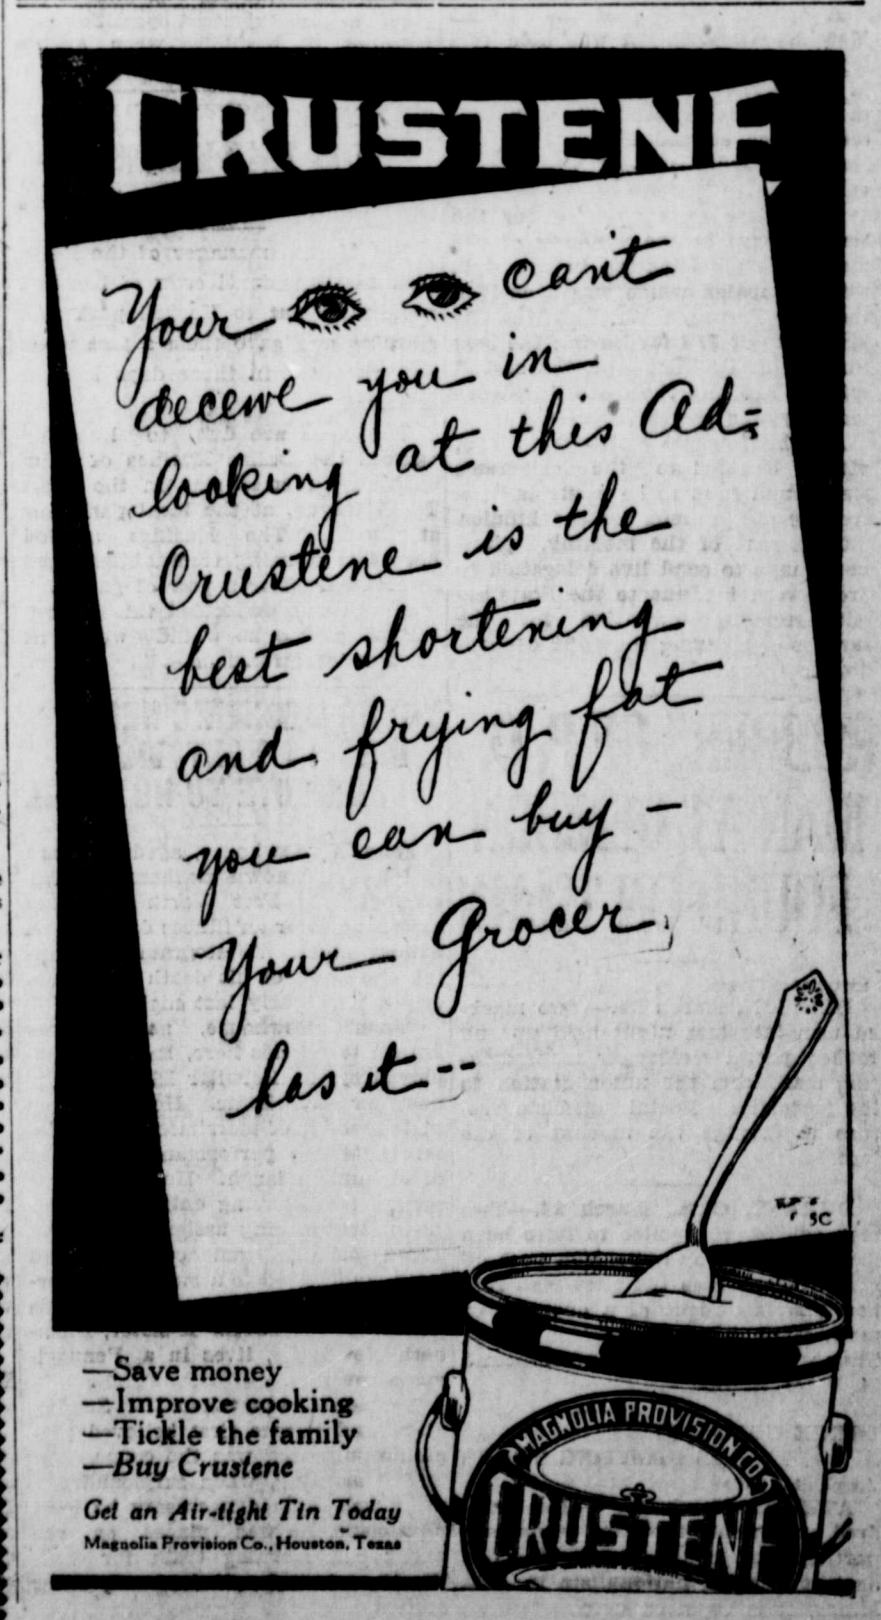 CRUSTENE
Your can't
deceive you in
looking at this Ad-
Crustene is the
best shortening
and frying fat
you can buy -
Your Grocer
has it--
—Save money
—Improve cooking
—Tickle the family
—Buy Crustene
Get an Air-tight Tin Today
Magnolia Provision Co., Houston, Texas
MAGNOLIA PROVISION CO.
CRUSTENE